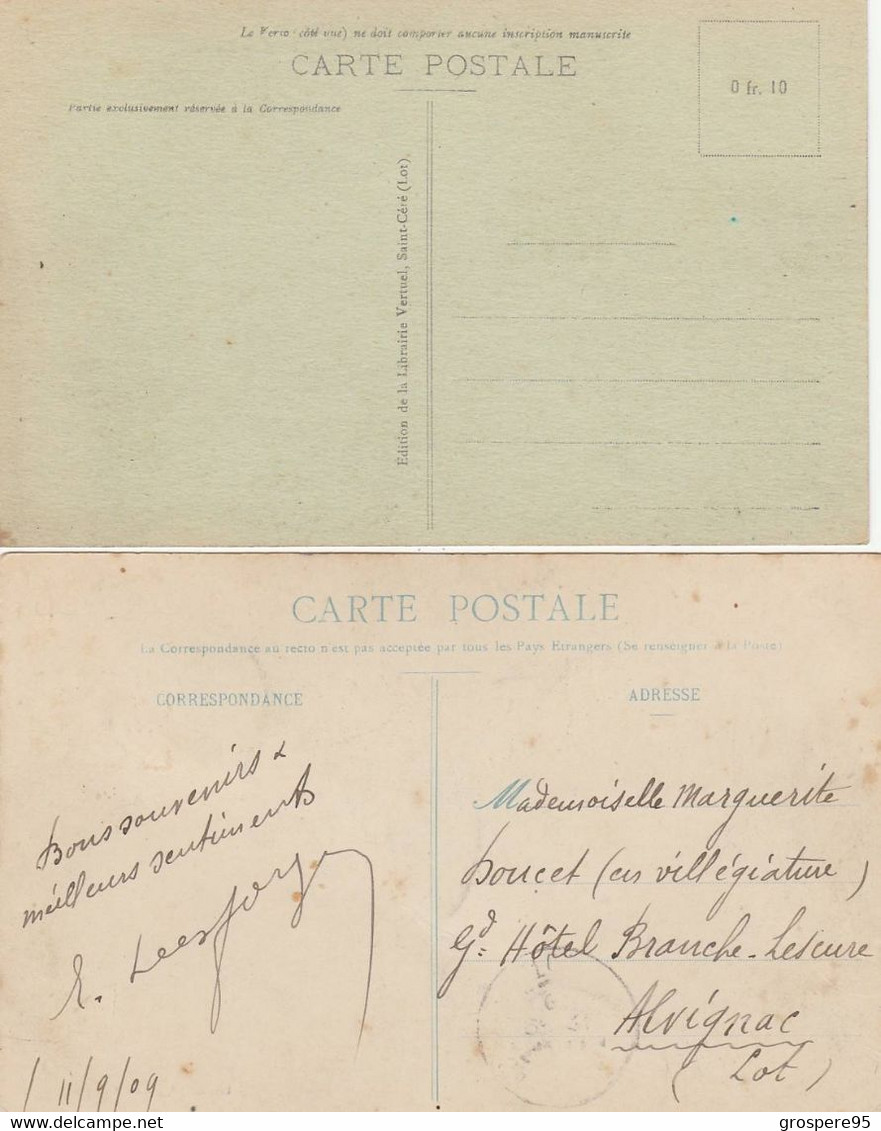 Le Verso (côté vue) ne doit comporter aucune inscription manuscrite
CARTE POSTALE
Partie exclusivement réservée à la Correspondance
0 fr. 10
Edition de la Librairie Vertuel, Saint-Céré (Lot).
CARTE POSTALE
La Correspondance au recto n'est pas acceptée par tous les Pays Etrangers (Se renseigner à la Poste)
CORRESPONDANCE
ADRESSE
Bons souvenirs &
meilleurs sentiments
E.
11/9/09
Mademoiselle Marguerite
Doucet (en villégiature)
Gd Hôtel Branche-Lescure
Alvignac
(Lot)
grospere95